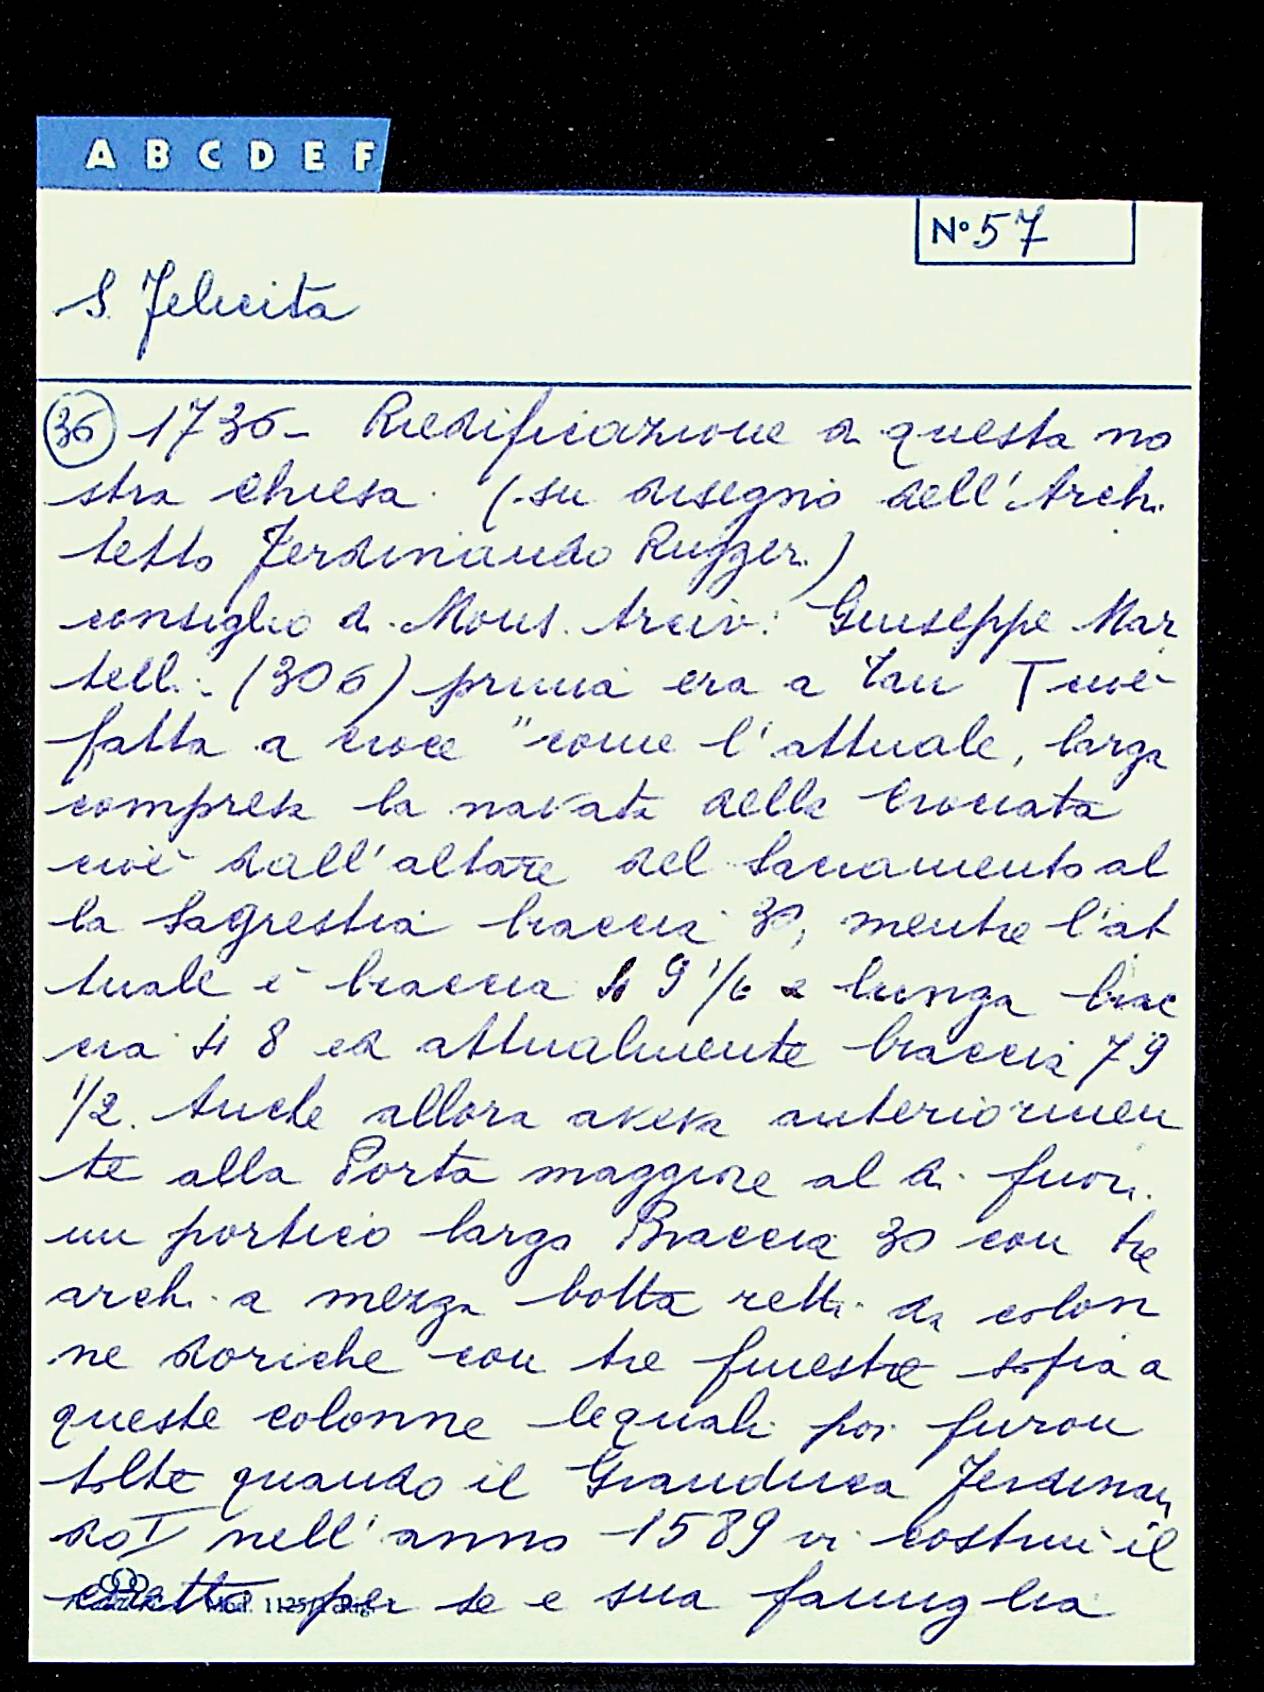 A B C D E F
N° 57
S. Felicita
36 1736 - Riedificazione di questa no
stra chiesa. (su disegno dell'Archi
tetto Ferdinando Ruggeri)
consiglio di Mons. Arciv. Giuseppe Mar
telli (306) prima era a Tau T cioè
fatta a croce "come l'attuale, larga
compresa la navata della Crociata
cioè dall'altare del Sacramento al
la Sagrestia braccia 30, mentre l'at
tuale è braccia 49 1/6 e lunga brac
cia 48 ed attualmente braccia 79
1/2. Anche allora aveva anteriormen
te alla Porta maggiore al di fuori
un portico largo Braccia 30 con tre
archi a mezza botta retti da colon
ne doriche con tre finestre sopra a
queste colonne lequali poi furon
tolte quando il Granduca Ferdinan
do I nell'anno 1589 vi costruì il
per se e sua famiglia